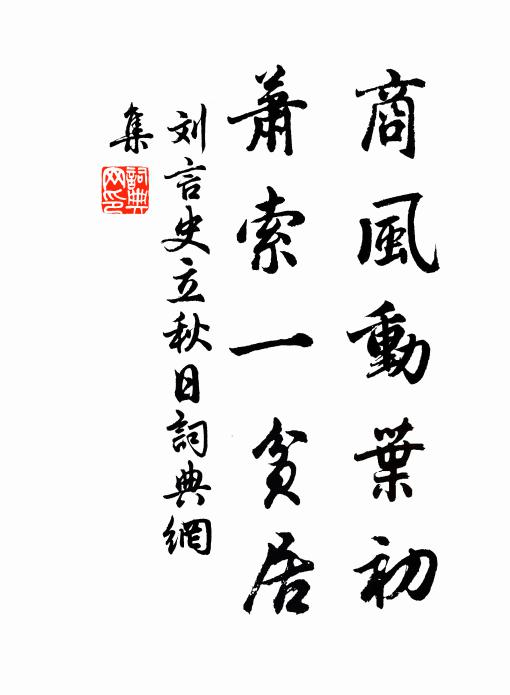 商風動葉初
蕭索一貧居
刘言史立秋日詞典網
集
詞典
网印